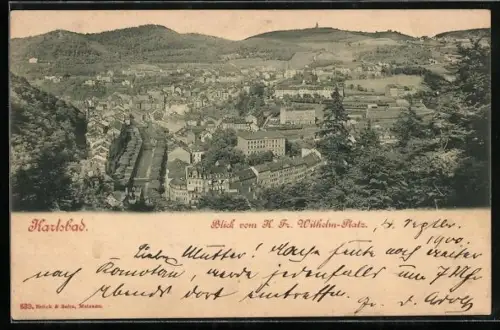 Karlsbad.
Blick vom K. Fr. Wilhelm-Platz.
4. Septbr.
1900.
Liebe Mutter! Fahre heute noch weiter
nach Komotau, werde jedenfalls um 7 Uhr
Abends dort eintreffen. Gr. d. Adolf
839. Brück & Sohn, Meissen.